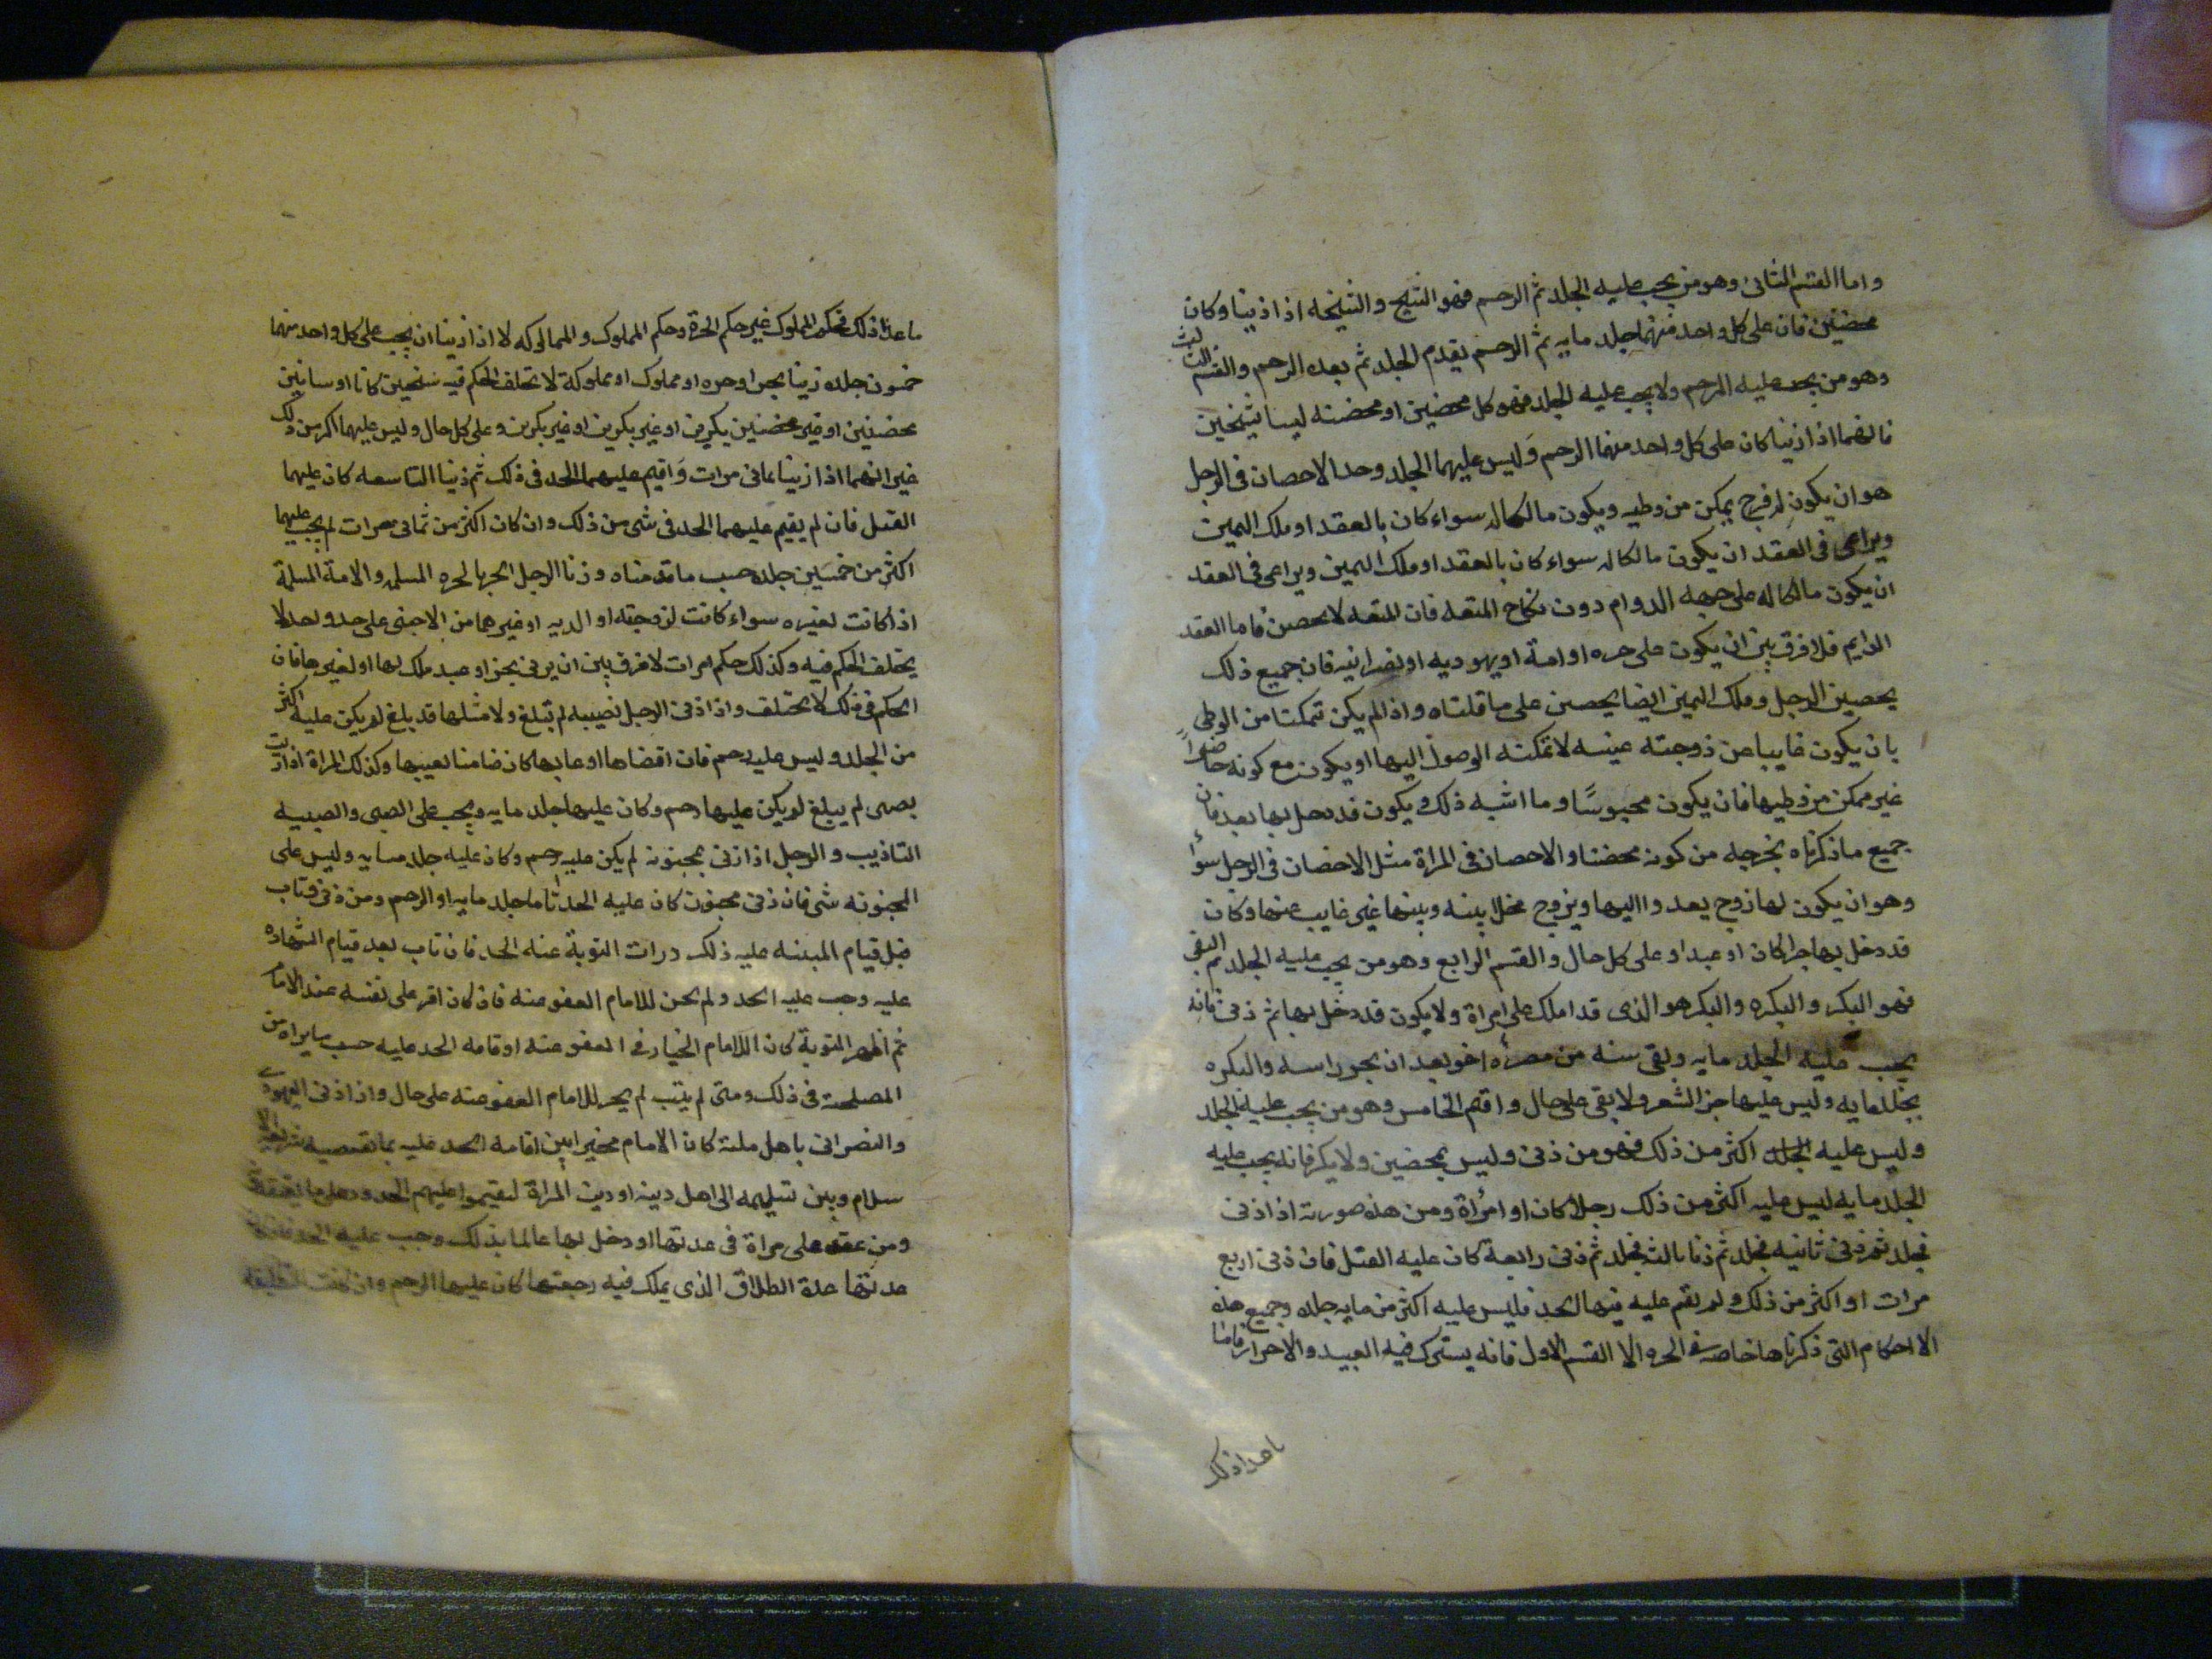 واما القسم الثانى وهو من يجب عليه الجلد ثم الرجم فهو الشيخ والشيخه اذا زنيا وكان
محضنين فان على كل واحد منهما جلد مايه ثم الرجم يقدم الجلد ثم بعده الرجم والقسم الثالث
وهو من يجب عليه الرجم ولا يجب عليه الجلد فهو كل محضين او محضنه ليسا بشيخين
فانهما اذا زنيا كان على كل واحد منهما الرجم وليس عليهما الجلد وحد الاحصان فى الرجل
هو ان يكون له فرج يمكن من وطيه ويكون مالكا له سواء كان بالعقد او ملك اليمين
ويراعى فى العقد ان يكون مالكا له سواء كان بالعقد او ملك اليمين ويراعى فى العقد
ان يكون مالكا له على جهه الدوام دون نكاح المتعه فان المتعه لا تحصن فاما العقد
الدايم فلا فرق بين ان يكون على حره او امة او يهوديه او نصرانيه فان جميع ذلك
يحصين الرجل وملك اليمين ايضا يحصن على ما قلناه واذا لم يكن تمكنا من الوطى
بان يكون غايبا عن زوجته غيبه لا تمكنه الوصول اليها او يكون مع كونه حاضراً
غير ممكن من وطيها فان يكون محبوسًا وما اشبه ذلك ويكون قد دخل بها بعد فان
جميع ما ذكرناه يخرجه من كونه محضنا والاحصان فى المراة مثل الاحضان فى الرجل سواء
وهو ان يكون لها زوج يعدوا اليها ويروح مخلا بينه وبينها غير غايب عنها وكان
قد دخل بها حرا كان او عبدا وعلى كل حال والقسم الرابع وهو من يجب عليه الجلد ثم النفى
فهو البكر والبكره والبكر هو الذى قد املك على امراة ولا يكون قد دخل بها ثم زنى فانه
يجب عليه الجلد مايه ونفى سنه من مصره اخر بعد ان يجز راسه والبكره
تجلد مايه وليس عليها جز الشعر ولا نفى على حال واقسم الخامس وهو من يجب عليه الجلد
وليس عليه الجلد اكثر من ذلك فهو من زنى وليس بمحضين ولا بكر فانه يجب عليه
الجلد مايه ليس عليه اكثر من ذلك رجلا كان او امرأة ومن هذه صورته اذا زنى
فجلد ثم زنى ثانيه فجلد ثم زنا ثالث فجلد ثم زنى رابعة كان عليه القتل فان زنى اربع
مرات او اكثر من ذلك ولم يقم عليه فيها الحد فليس عليه اكثر من مايه جلده وجميع هذه
الا احكام التى ذكرناها خاصه فى الحره الا القسم الاول فانه يسترك فيه العبيد والاحرار فاما
ما عدا ذلك
ما عدا ذلك فحكم المملوك غير حكم الحرة وحكم المملوك والممالوكه لا اذا زنيا ان يجب على كل واحد منهما
خمسون جلده زنيا بحر او حره او مملوك او مملوكة لا تختلف الحكم فيه شيخين كانا او سابين
محضنين او غير محضنين بكرين او غير بكرين او غير بكرين وعلى كل حال وليس عليهما اكثر من ذلك
غير انهما اذا زنيا ثمانى مرات وَاقيم عليهما الحد فى ذلك ثم زنيا التاسعه كان عليهما
القتل فان لم يقيم عليهما الحد فى شى من ذلك وان كان اكثر من ثمانى مرات لم يجب عليهما
اكثر من خمسين جلده حسب ما قدمناه وزنا الرجل الحر بالحره المسلمه والامة المسلمة
اذا كانت لغيره سواء كانت لزوجته او الديه او غيرهما من الاجنبى على حد واحد لا
يختلف الحكم فيه وكذلك حكم امرات لا فرق بين ان يزنى بحر او عبد ملك لها او لغيرها فان
الحكم فى ذلك لا يختلف واذا زنى الرجل بصبيه لم تبلغ ولا مثلها قد بلغ لم يكن عليه اكثر
من الجلد وليس عليه رجم فان افضاها او عابها كان ضامنا لعيبها وكذلك المراة اذا زنيت
بصبى لم يبلغ لم يكن عليها رجم وكان عليها جلد مايه ويجب على الصبى والصبيه
التاذيب والرجل اذا زنى بمجنونه لم يكن عليه رجم وكان عليه جلد مسايه وليس على
المجنونه شى فان زنى مجنون كان عليه الحد تاما جلد مايه او الرجم ومن زنى وتاب
قبل قيام المبينه عليه ذلك درات التوبة عنه الحد فان تاب بعد قيام الشهاده
عليه وجب عليه الحد ولم يجن للامام العفو عنه فان كان اقر على نفسه عند الامام
ثم اظهر التوبة كان اللامام الخيار فى العفو عنه او قامه الحد عليه حسب ما يراه من
المصلحة فى ذلك ومتى لم يتب لم يجز للامام العفو عنه على حال واذا زنى اليهودى
والنصرانى باهل ملته كان الامام مخيرا بين اقامه الحد عليه بما تقتضيه شريعه الا
سلام وبين تسليمه الى اهل دينه او دين المراة ليقيموا عليهم الحدود على ما يعتقدونه
ومن عقد على مراة فى عدتها او دخل بها عالما بذلك وجب عليه الحد
عدتها عدة الطلاق الذى يملك فيه رجعتها كان عليها الرجم وان كانت